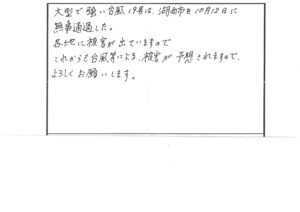 大型で強い台風19号は、湖西市を10月12日に
無事通過した。
各地に被害が出ていますので
これからも台風等による、被害が予想されますので、
よろしくお願いします。